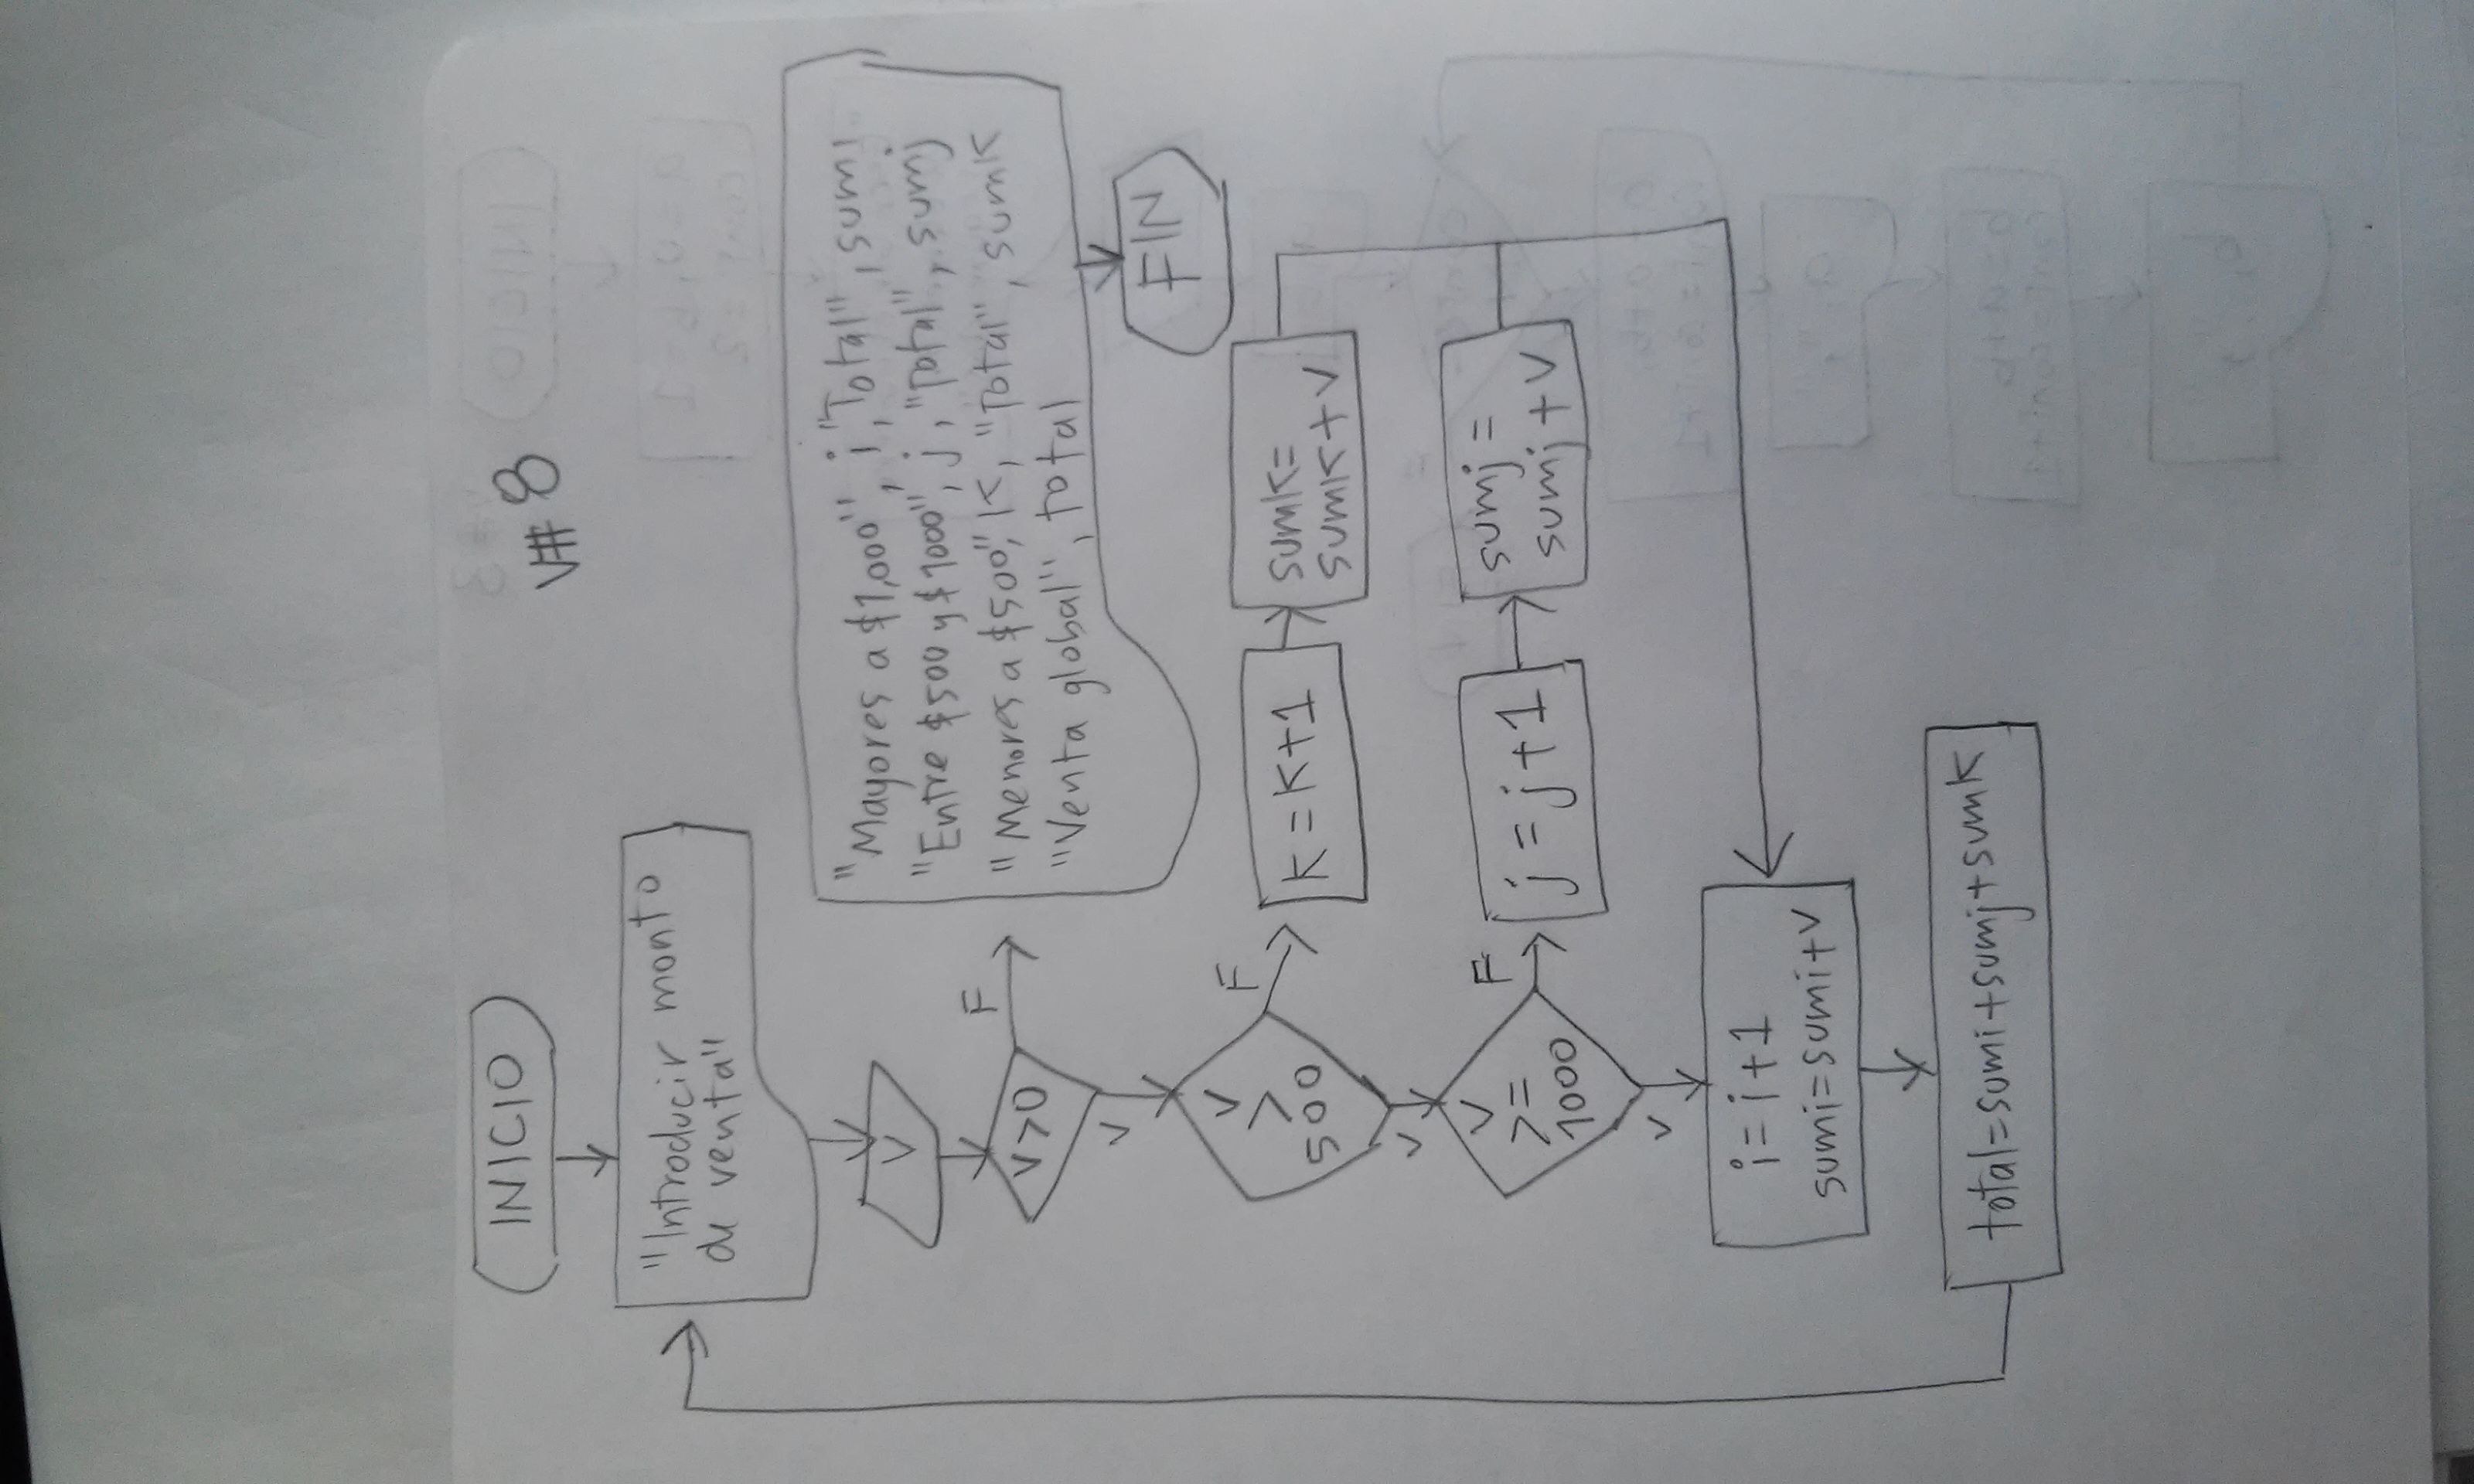 INICIO
V# 8
"Introducir monto
de venta"
V
V>0
F
V
"Mayores a $1,000", i, "Total", sumi
"Entre $500 y $1000", j, "Total", sumj
"Menores a $500", K, "Total", sumK
"Venta global", total
FIN
V
>
500
F
V
K = K+1
sumK=
sumK+V
V
>=
1000
F
V
j = j+1
sumj =
sumj+V
i=i+1
sumi=sumi+V
total=sumi+sumj+sumK